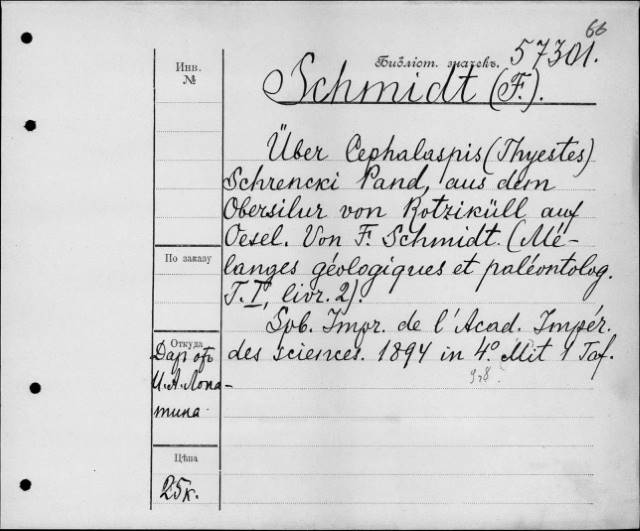 66
Инв. №
Библіот. значекъ. 57301.
Schmidt (F.).
Über Cephalaspis (Thyestes)
Schrencki Pand, aus dem
Obersilur von Rotziküll auf
Oesel. Von F. Schmidt. (Mé-
langes géologiques et paléontolog.
T. I, livr. 2).
Spb. Impr. de l'Acad. Impér.
des sciences. 1894 in 4º. Mit 1 Taf.
По заказу
Откуда
Даръ отъ
И. А. Лопа-
тина
Цѣна
25к.